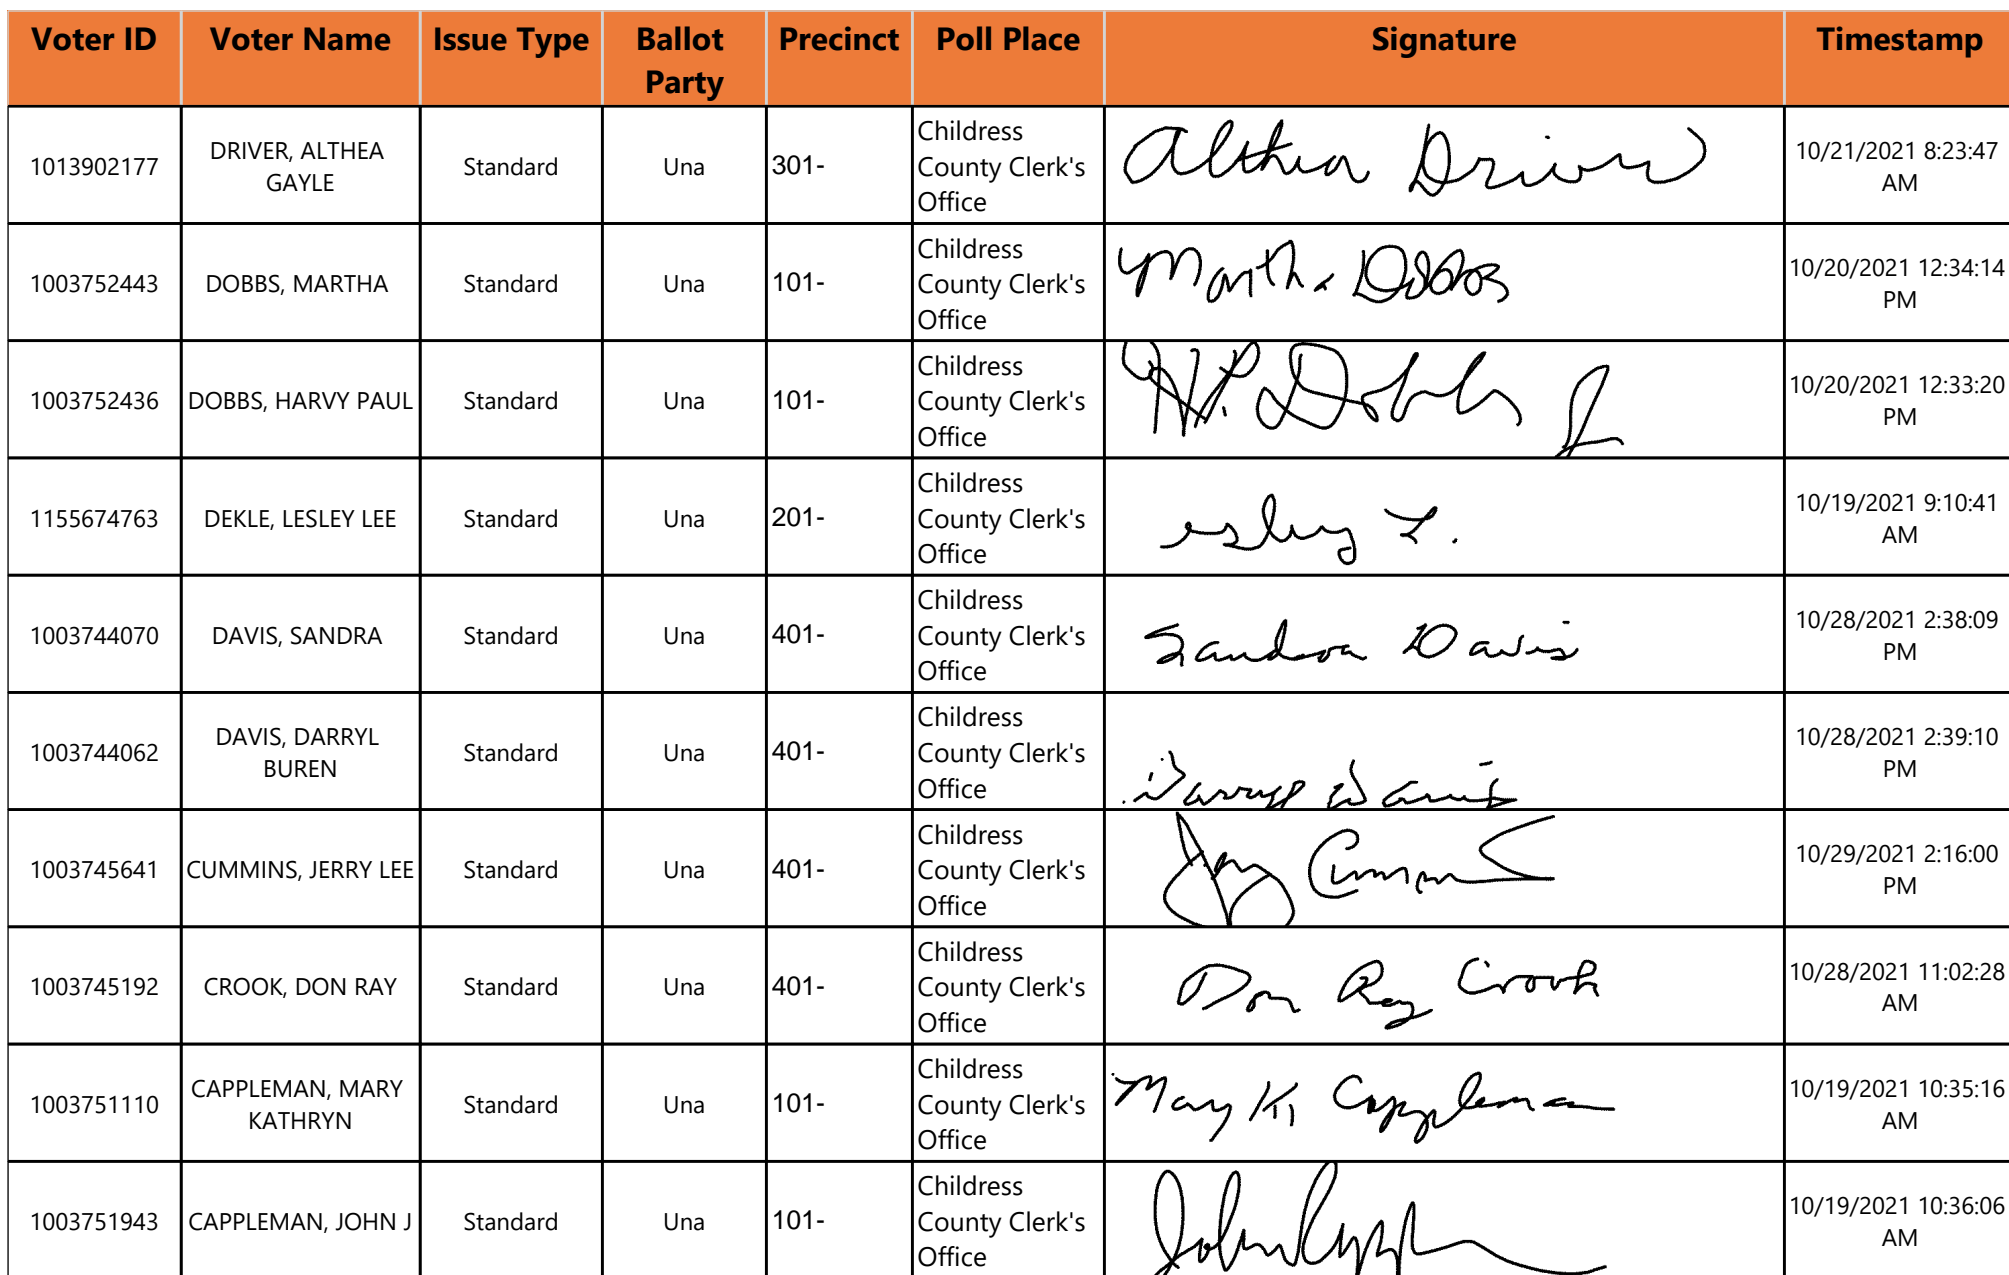 Voter ID Voter Name Issue Type Ballot Party Precinct Poll Place Signature Timestamp
1013902177 DRIVER, ALTHEA GAYLE Standard Una 301- Childress County Clerk's Office Althea Driver 10/21/2021 8:23:47 AM
1003752443 DOBBS, MARTHA Standard Una 101- Childress County Clerk's Office Martha Dobbs 10/20/2021 12:34:14 PM
1003752436 DOBBS, HARVY PAUL Standard Una 101- Childress County Clerk's Office H.P. Dobbs Jr 10/20/2021 12:33:20 PM
1155674763 DEKLE, LESLEY LEE Standard Una 201- Childress County Clerk's Office esley L. 10/19/2021 9:10:41 AM
1003744070 DAVIS, SANDRA Standard Una 401- Childress County Clerk's Office Sandra Davis 10/28/2021 2:38:09 PM
1003744062 DAVIS, DARRYL BUREN Standard Una 401- Childress County Clerk's Office Darryl Davis 10/28/2021 2:39:10 PM
1003745641 CUMMINS, JERRY LEE Standard Una 401- Childress County Clerk's Office Jerry Cummins 10/29/2021 2:16:00 PM
1003745192 CROOK, DON RAY Standard Una 401- Childress County Clerk's Office Don Ray Crook 10/28/2021 11:02:28 AM
1003751110 CAPPLEMAN, MARY KATHRYN Standard Una 101- Childress County Clerk's Office Mary K. Cappleman 10/19/2021 10:35:16 AM
1003751943 CAPPLEMAN, JOHN J Standard Una 101- Childress County Clerk's Office John 10/19/2021 10:36:06 AM